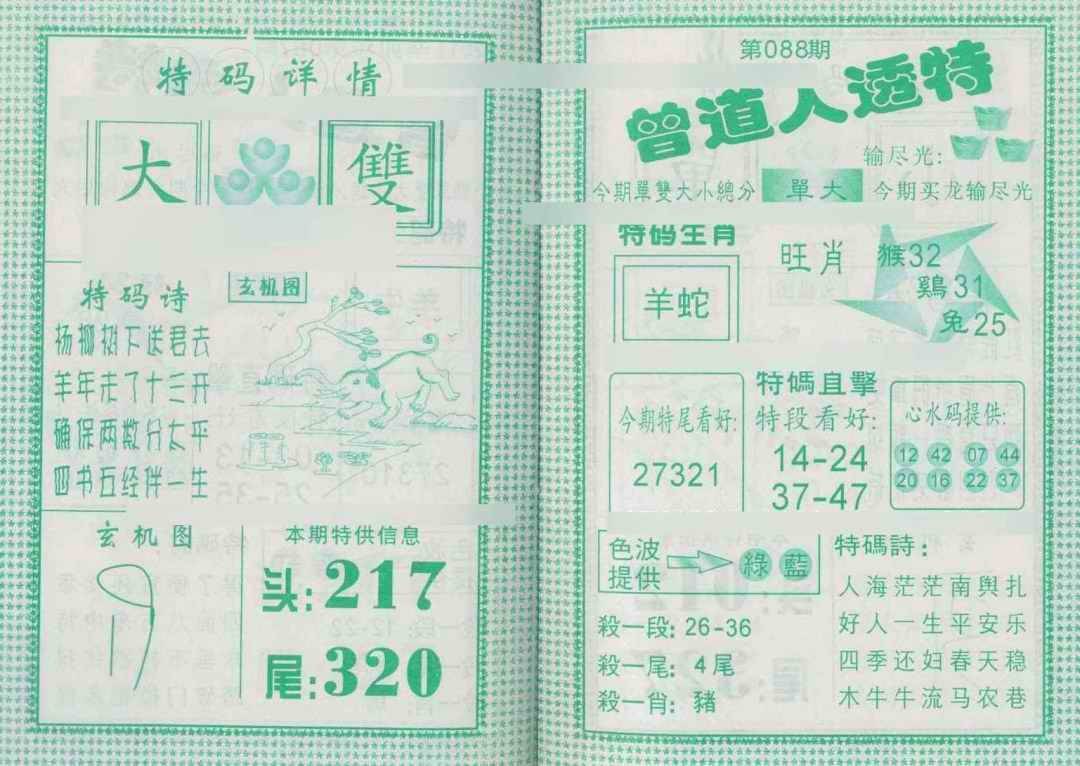 特码详情
大 雙
特码诗
玄机图
杨柳树下送君去
羊年走了十三开
确保两数分太平
四书五经伴一生
玄机图
本期特供信息
头:217
尾:320
第088期
曾道人透特
输尽光:
今期單雙大小總分 單大 今期买龙输尽光
特码生肖
羊蛇
旺肖
猴32
鷄31
兔25
今期特尾看好:
27321
特碼直擊
特段看好:
14-24
37-47
心水码提供:
12 42 07 44
20 16 22 37
色波提供 綠 藍
殺一段: 26-36
殺一尾: 4尾
殺一肖: 豬
特碼詩:
人海茫茫南舆扎
好人一生平安乐
四季还妇春天稳
木牛牛流马农巷